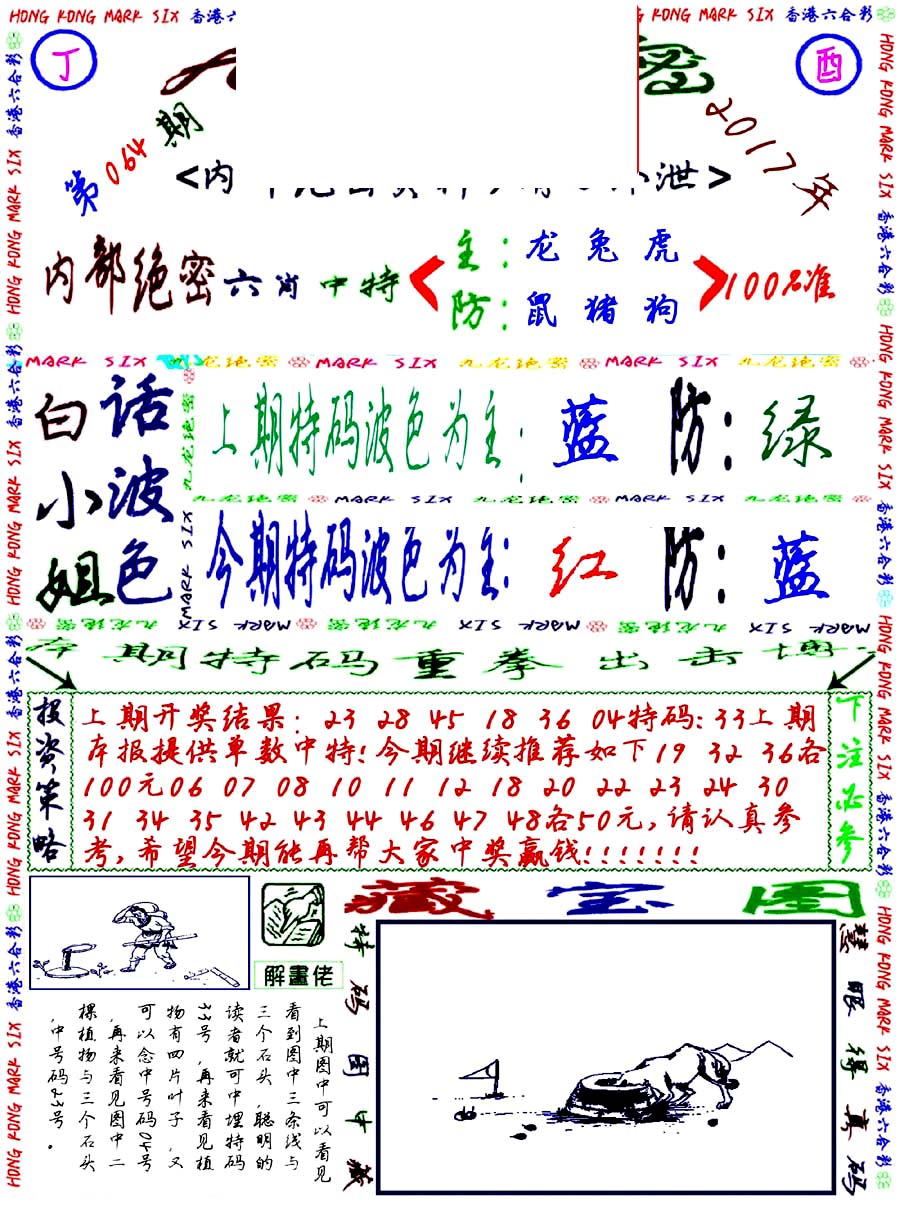 HONG KONG MARK SIX 香港六合彩
KONG MARK SIX 香港六合彩
丁
酉
密
第064期
2017年
<内
泄>
内部绝密六肖中特
主：龙兔虎
防：鼠猪狗
100%准
MARK SIX 九龙绝密 MARK SIX 九龙绝密 MARK SIX 九龙绝密
白话小波姐色
上期特码波色为主：蓝 防：绿
九龙绝密 MARK SIX 九龙绝密 MARK SIX 九龙绝密
今期特码波色为主：红 防：蓝
九龙绝密 MARK SIX 九龙绝密 MARK SIX 九龙绝密 MARK SIX
本期特码重拳出击博
投资策略
上期开奖结果：23 28 45 18 36 04特码:33上期
本报提供单数中特!今期继续推荐如下19 32 36各
100元06 07 08 10 11 12 18 20 22 23 24 30
31 34 35 42 43 44 46 47 48各50元,请认真参
考,希望今期能再帮大家中奖赢钱!!!!!!!
下注必参
解畫佬
藏宝图
特码图中藏
慧眼得真码
上期图中可以看见
看到图中三条线与
三个石头,聪明的
读者就可中埋特码
33号,再来看见植
物有四片叶子,又
可以念中号码04号
,再来看见图中二
棵植物与三个石头
,中号码23号。